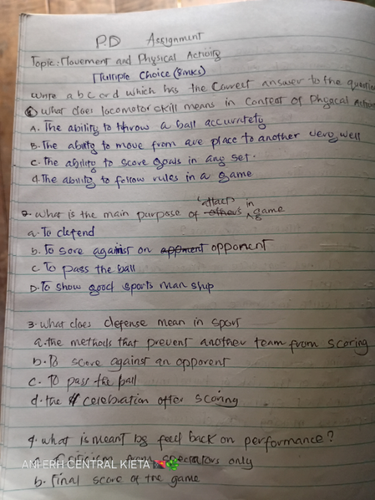 PD Assignment
Topic: Movement and Physical Activity
Multiple Choice (5mks)
write a b c or d which has the Correct answer to the question
① What does locomotor skill means in Context of Physical
A. The ability to throw a ball accurately
B. The ability to move from one place to another very well
C. The ability to score goals in any set.
d. The ability to follow rules in a game
2. What is the main purpose of attack in game
a. To defend
b. To sore against on opponent
C. To pass the ball
D. To show good sports man ship
3. What does defense mean in sport
a. the methods that prevent another team from scoring
b. To score against an opponent
C. To pass the ball
d. the celebration after scoring
4. what is meant by feed back on performance?
from spectators only
b. final score of the game
CENTRAL KIETA